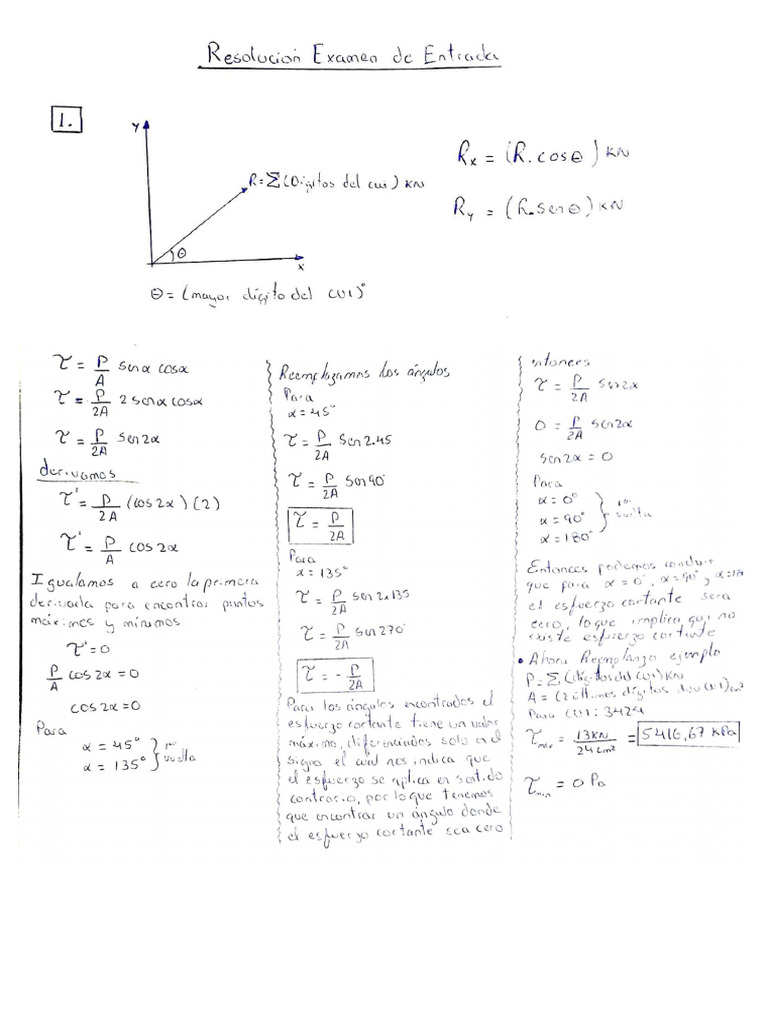 Resolucion Examen de Entrada
1.
Y
R = Σ(Dígitos del cui) KN
θ
x
θ = (mayor dígito del CUI)°
Rx = (R. cosθ) KN
Ry = (R. Senθ) KN
τ = P/A senα cosα
τ = P/2A 2 senα cosα
τ = P/2A sen2α
derivamos
τ' = P/2A (cos2α)(2)
τ' = P/A cos2α
Igualamos a cero la primera
derivada para encontrar puntos
máximos y mínimos
τ' = 0
P/A cos2α = 0
cos2α = 0
Para
α = 45°
α = 135°
} 1ra vuelta
Reemplazamos los ángulos
Para
α = 45°
τ = P/2A Sen2.45
τ = P/2A Sen90°
τ = P/2A
Para
α = 135°
τ = P/2A sen2x135
τ = P/2A sen270°
τ = - P/2A
Para los ángulos encontrados el
esfuerzo cortante tiene un valor
máximo, diferenciados solo en el
signo el cual nos indica que
el esfuerzo se aplica en sentido
contrario, por lo que tenemos
que encontrar un ángulo donde
el esfuerzo cortante sea cero
entonces
τ = P/2A sen2α
0 = P/2A sen2α
sen2α = 0
Para
α = 0°
α = 90°
α = 180°
} 1ra vuelta
Entonces podemos concluir
que para α = 0°, α = 90°, α = 180
el esfuerzo cortante sera
cero, lo que implica que no
existe esfuerzo cortante
• Ahora Reemplanzo ejemplo
P = Σ(dígitos del CUI) KN
A = (2 últimos dígitos del CUI) cm²
Para CUI: 3424
τmax = 13KN/24cm² = 5416,67 KPa
τmin = 0 Pa